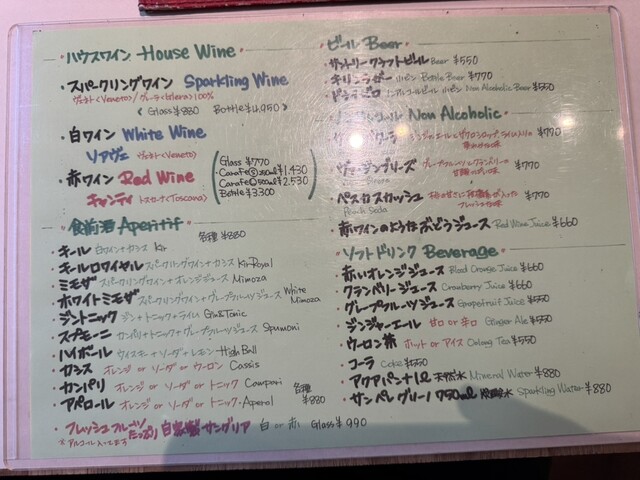 ・ハウスワイン House Wine
・スパークリングワイン Sparkling Wine
ヴェネト(Veneto)/グレーラ(Glera)100%
《 Glass ¥880 Bottle ¥4,950 》
・白ワイン White Wine
ソアヴェ ヴェネト(Veneto)
・赤ワイン Red Wine
キャンティ トスカーナ(Toscana)
Glass ¥770
Carafe 250ml ¥1,430
Carafe 500ml ¥2,530
Bottle ¥3,300
・食前酒 Aperitif 各種 ¥880
・キール 白ワイン+カシス Kir
・キールロワイヤル スパークリングワイン+カシス Kir Royal
・ミモザ スパークリングワイン+オレンジジュース Mimoza
・ホワイトミモザ スパークリングワイン+グレープフルーツジュース White Mimoza
・ジントニック ジン+トニック+ライム Gin&Tonic
・スプモーニ カンパリ+トニック+グレープフルーツジュース Spumoni
・ハイボール ウイスキー+ソーダ+レモン High Ball
・カシス オレンジ or ソーダ or ウーロン Cassis
・カンパリ オレンジ or ソーダ or トニック Campari
・アペロール オレンジ or ソーダ or トニック Aperol
各種 ¥880
・フレッシュフルーツたっぷり 自家製サングリア 白 or 赤 Glass ¥990
*アルコール入ってます
・ビール Beer
・サントリークラフトビール Beer ¥550
・キリンラガー 小ビン Bottle Beer ¥770
・ドライゼロ ノンアルコールビール 小ビン Non Alcoholic Beer ¥550
・ノンアルコール Non Alcoholic
¥770
・ヴァージンブリーズ グレープフルーツとクランベリーの ¥770
Breeze
・ペスカスカッシュ ¥770
Peach Soda
・赤ワインのようなぶどうジュース Red Wine Juice ¥660
・ソフトドリンク Beverage
・赤いオレンジジュース Blood Orange Juice ¥660
・クランベリージュース Cranberry Juice ¥660
・グレープフルーツジュース Grapefruit Juice ¥550
・ジンジャーエール 甘口 or 辛口 Ginger Ale ¥550
・ウーロン茶 ホット or アイス Oolong Tea ¥550
・コーラ Coke ¥550
・アクアパンナ1ℓ 天然水 Mineral Water ¥880
・サンペレグリーノ750mℓ 炭酸水 Sparkling Water ¥880